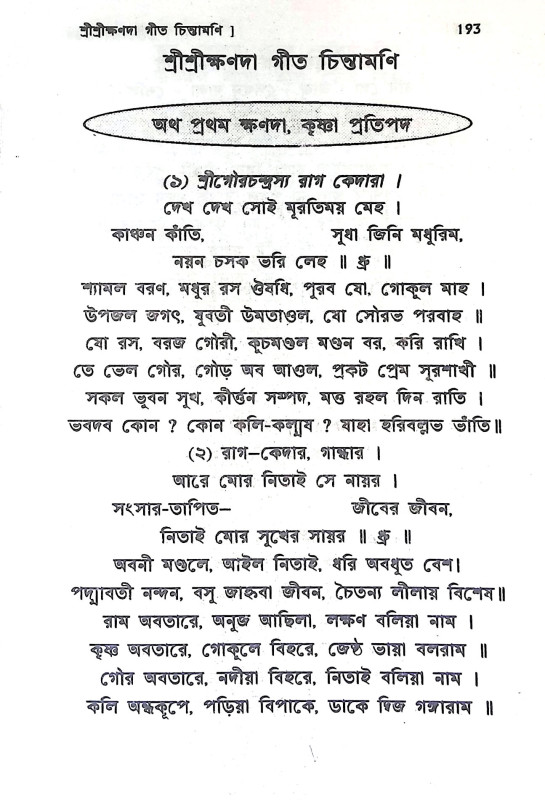 শ্রীশ্রীক্ষণদা গীত চিন্তামণি ] 193
শ্রীশ্রীক্ষণদা গীত চিন্তামণি
অথ প্রথম ক্ষণদা, কৃষ্ণা প্রতিপদ
(১) শ্রীগৌরচন্দ্রস্য রাগ কেদারা ।
দেখ দেখ সোই মূরতিময় মেহ ।
কাঞ্চন কাঁতি, সুধা জিনি মধুরিম,
নয়ন চসক ভরি লেহ ॥ ধ্রু ॥
শ্যামল বরণ, মধুর রস ঔষধি, পূরব যো, গোকুল মাহ ।
উপজল জগৎ, যুবতী উমতাওল, যো সৌরভ পরবাহ ॥
যো রস, বরজ গৌরী, কুচমণ্ডল মণ্ডন বর, করি রাখি ।
তে ভেল গৌর, গৌড় অব আওল, প্রকট প্রেম সুরশাখী ॥
সকল ভুবন সুখ, কীর্ত্তন সম্পদ, মত্ত রহল দিন রাতি ।
ভবদব কোন ? কোন কলি-কল্মষ ? যাহা হরিবল্লভ ভাঁতি॥
(২) রাগ–কেদার, গান্ধার ।
আরে মোর নিতাই সে নায়র ।
সংসার-তাপিত– জীবের জীবন,
নিতাই মোর সুখের সায়র ॥ ধ্রু ॥
অবনী মণ্ডলে, আইল নিতাই, ধরি অবধূত বেশ।
পদ্মাবতী নন্দন, বসু জাহ্নবা জীবন, চৈতন্য লীলায় বিশেষ॥
রাম অবতারে, অনুজ আছিলা, লক্ষণ বলিয়া নাম ।
কৃষ্ণ অবতারে, গোকুলে বিহরে, জেষ্ঠ ভায়া বলরাম ॥
গৌর অবতারে, নদীয়া বিহরে, নিতাই বলিয়া নাম ।
কলি অন্ধকূপে, পড়িয়া বিপাকে, ডাকে দ্বিজ গঙ্গারাম ॥